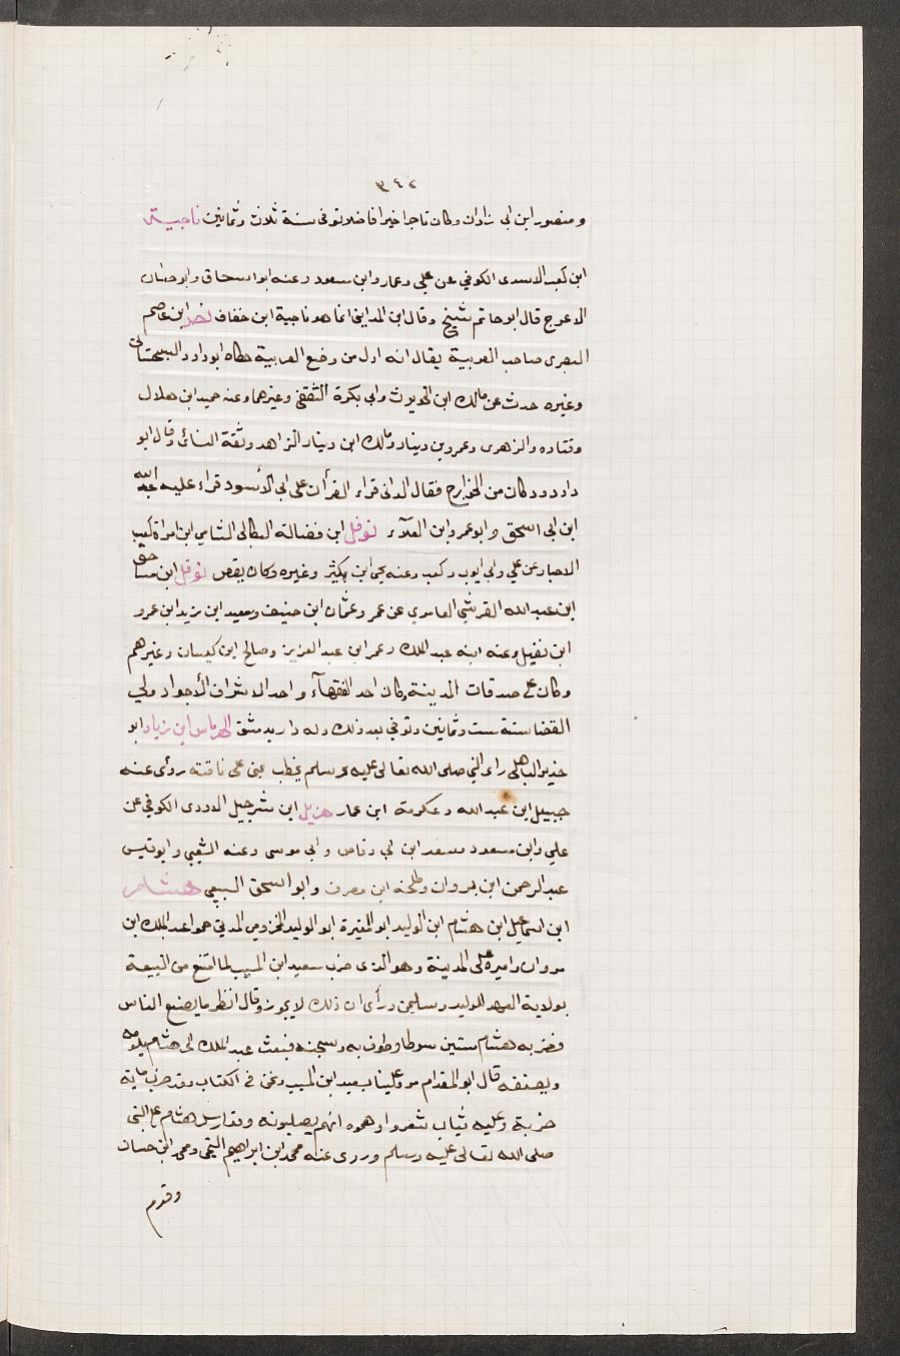 ٣٤٢
ومنصور ابن ابي زاذان وكان تاجرا خيرا فاضلا توفى سنة ثلاث وثمانين ناجية
ابن كعب الاسدى الكوفي عن علي وعمار وابن سعود وعنه ابو اسحاق وابو حسان
الاعرج قال ابو حاتم شيخ وقال ابن المدايني انما هو ناجية ابن خفاف نصر ابن عاصم
البصرى صاحب العربية يقال انه اول من وضع العربية حكاه ابو داود السجستاني
وغيره حدث عن مالك ابن الحويرث وابي بكرة الثقفي وغيرهما وعنه حميد ابن هلال
وقتاده والزهرى وعمرو بن دينار ومالك ابن دينار الزاهد وثقة النسائي وقال ابو
داود وكان من الخوارج فقال الدانى قراء القرأن على ابي الأسود قراء عليه عبد الله
ابن ابي اسحق وابو عمرو ابن العلآء نوفل ابن فضالة البكالى الشامي ابن امراة كعب
الاحبار عن علي وابي ايوب وكعب وعنه يحى ابن بكثير وغيره وكان يقص نوفل ابن مساحق
ابن عبد الله القرشي العامرى عن عمر وعثمان ابن حنيف وسعيد ابن زيد ابن عمرو
ابن نفيل وعنه ابنه عبد الملك وعمر ابن عبد العزيز وصالح ابن كيسان وغيرهم
وكان على صدقات المدينة وكان احد الفقهآء واحد الاشراف الأجواد ولي
القضا سنة ست وثمانين وتوفي بعد ذلك وله دار بدمشق الهرماس ابن زياد ابو
حذير الباهلى راى النبي صلى الله تعالى عليه وسلم يخطب بمنى على ناقته روى عنه
حبيل ابن عبد الله وعكرمة ابن عمار هزيل ابن شرحبيل الاودى الكوفي عن
علي وابن مسعود وسعد ابن ابي وقاص وابي موسى وعنه الشعبي وابو قيس
عبد الرحمن ابن بمروان وطلحة ابن مصرف وابو اسحق السبيعى هشام
ابن اسماعيل ابن هشام ابن الوليد ابو المغيرة ابو الوليد المخزومي المدني حموا عبد الملك ابن
مروان واميره على المدينة وهو الذى ضرب سعيد ابن المسيب لما امتنع من البيعة
بولاية العهد للوليد وسليمن ورأى ان ذلك لا يجوز وقال انظر ما يصنع الناس
فضربه هشام ستين سوطا وطوف به وسجنه فبعث عبد الملك الى هشام يلومه
ويعنفه قال ابو المقدام مر علينا بسعيد ابن المسيب ونحن في الكتاب وقد ضرب ماية
ضربة وعليه ثياب شعر واوهموه انهم يصلبونه وقد ارسل هشام عن النبي
صلى الله تعالى عليه وسلم وروى عنه محمد ابن ابراهيم التيمى ومحمد ابن حسان
وقدم